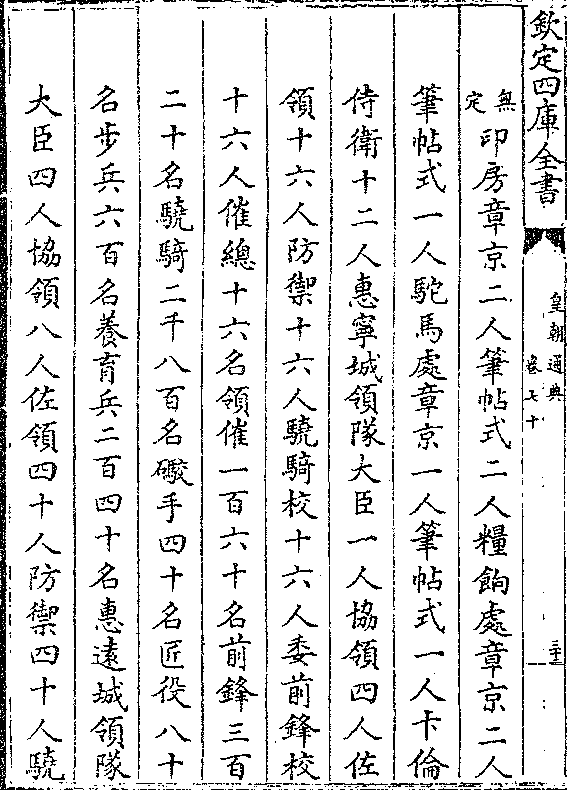 欽定四庫全書
皇朝通典
卷七十
三十三
無定印房章京二人筆帖式二人糧餉處章京二人
筆帖式一人駝馬處章京一人筆帖式一人卡倫
侍衛十二人惠寧城領隊大臣一人協領四人佐
領十六人防禦十六人驍騎校十六人委前鋒校
十六人催總十六名領催一百六十名前鋒三百
二十名驍騎二千八百名礮手四十名匠役八十
名步兵六百名養育兵二百四十名惠遠城領隊
大臣四人協領八人佐領四十人防禦四十人驍